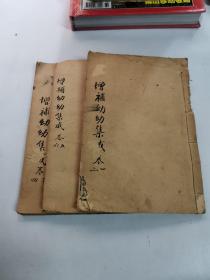 增補幼幼集成卷一二
增補幼幼集成卷
增補幼幼集成卷四